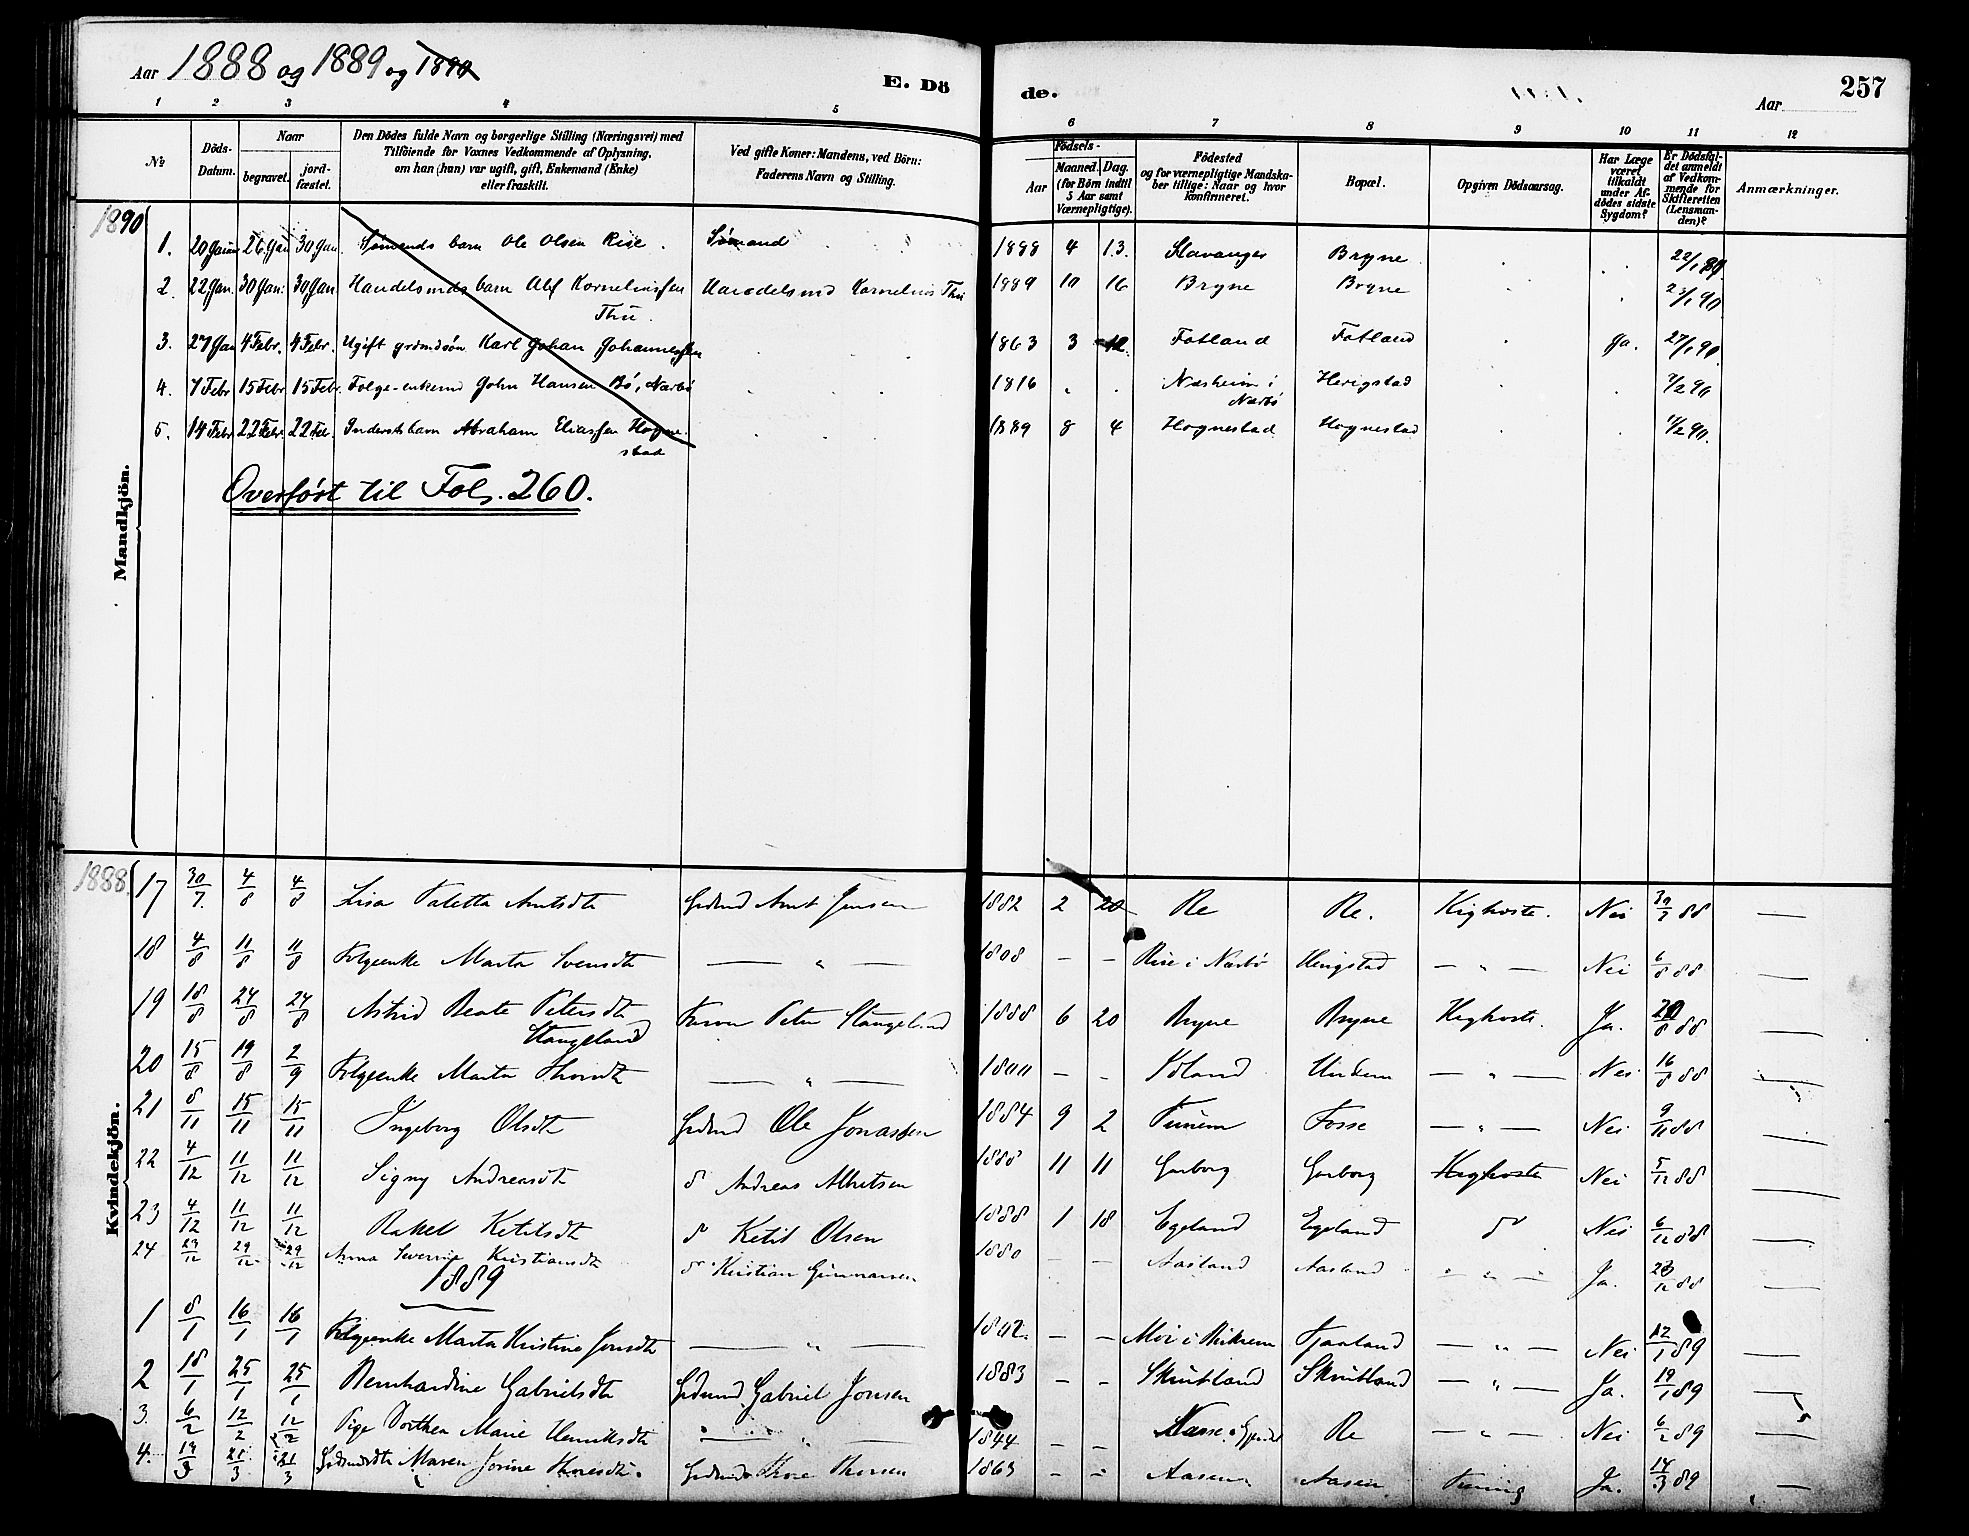 Aar 1888 og 1889 og 1890
E. Dö
de.
Aar
257
1 2 3 4 5 6 7 8 9 10 11 12
№
Döds-Datum.
Naar
begravet.
jord-fæstet.
Den Dödes fulde Navn og borgerlige Stilling (Næringsvei) med
Tilföiende for Voxnes Vedkommende af Oplysning,
om han (hun) var ugift, gift, Enkemand (Enke)
eller fraskilt.
Ved gifte Koner: Mandens, ved Börn:
Faderens Navn og Stilling.
Födsels-
Aar
Maaned. Dag.
(for Börn indtil
5 Aar samt
Værnepligtige).
Födested
og for værnepligtige Mandska-
ber tillige: Naar og hvor
konfirmeret.
Bopæl.
Opgiven Dödsaarsag.
Har Læge
været
tilkaldt
under Af-
dödes sidste
Sygdom?
Er Dödsfal-
det anmeldt
af Vedkom-
mende for
Skifteretten
(Lensman-
den)?
Anmærkninger.
1890
Mandkjön.
1. 20 Januar 26 Jan 30 Jan Sömands barn Ole Olsen Rise. Sömand 1888 4 13. Stavanger Bryne 22/1 89
2. 22 Jan. 30 Jan. 30 Jan Handelsmds barn Alf Kornelinssen Handelsmd Kornelius Thu 1889 10 16 Bryne Bryne 23/1 90
Thu.
3. 27 Jan 4 Febr. 4 Febr. Ugift grdmdsön Karl Johan Johannessen 1863 3 12. Fotland Fotland Ja. 27/1 90
4. 7 Febr 15 Febr 15 Febr. Folge-enkemd John Hansen Bö, Nærbö 1816 Næsheim i Herigstad 7/2 90
Nærbö
5. 14 Febr 22 Febr. 22 Feb. Inderstsbarn Abraham Eliassen Hogne- 1889 8 4 Hognestad Hognestad 14/2 90.
stad
Overfört til Fol. 260.
1888
Kvindekjön.
17 30/7. 4/8 4/8 Lisa Taletta Arntsdtr Grdmd Arnt Jensen 1882 2 20 Re Re. Kighoste. Nei 30/7 88 —
18 4/8 11/8 11/8 Folgeenke Marta Svensdtr — „ — 1808 — — Rise i Nærbö Herigstad — „ — Nei 6/8 88 —
19 18/8 24/8 24/8 Astrid Beate Petersdtr Peter Stangeland 1888 6 20 Bryne Bryne Kighoste. Ja. 20/8 88 —
Stangeland
20 15/8 19/8 2/9 Folgeenke Marta — „ — 1800 — — Undem — „ — Nei 16/8 88 —
21 8/11 15/11 15/11 Ingeborg Olsdtr Grdmd Ole Jonassen 1884 9 2 Tunem Fosse — „ — Nei 9/11 88 —
22 4/12 11/12 11/12 Signy Andreasdtr do Andreas Albretsen 1888 11 11 Garborg Garborg Kighoste Nei 5/12 88 —
23 4/12 11/12 11/12 Rakel Ketilsdtr do Ketil Olsen 1888 1 18 Egeland Egeland do Nei 6/12 88 —
24 29/12 29/12 Anna Severine Kristiansdtr do Kristian Gunnarsen 1880 — — Aasland Aasland — „ — Ja. 23/12 88 —
1889
1 8/1 16/1 16/1 Folgeenke Marta Kristine Jonsdtr — „ — 1802 — — Moi i Bjerkrem Fjaaland — „ — Nei 12/1 89 —
2 18/1 25/1 25/1 Bernhardine Gabrielsdtr Grdmd Gabriel Jonsen 1883 — — Skrudland Skrudland — „ — Ja. 19/1 89
3. 6/2 12/2 12/2 Pige Dorthea Marie Henriksdtr — „ — 1844 — — Re — „ — Nei 6/2 89 —
4. 21/3 21/3 Grdmdsdtr Maren Jorine Thoresdtr. Grdmd Thore Thorsen 1863 — — Aasen Aasen Tæring Ja. 14/3 89 —